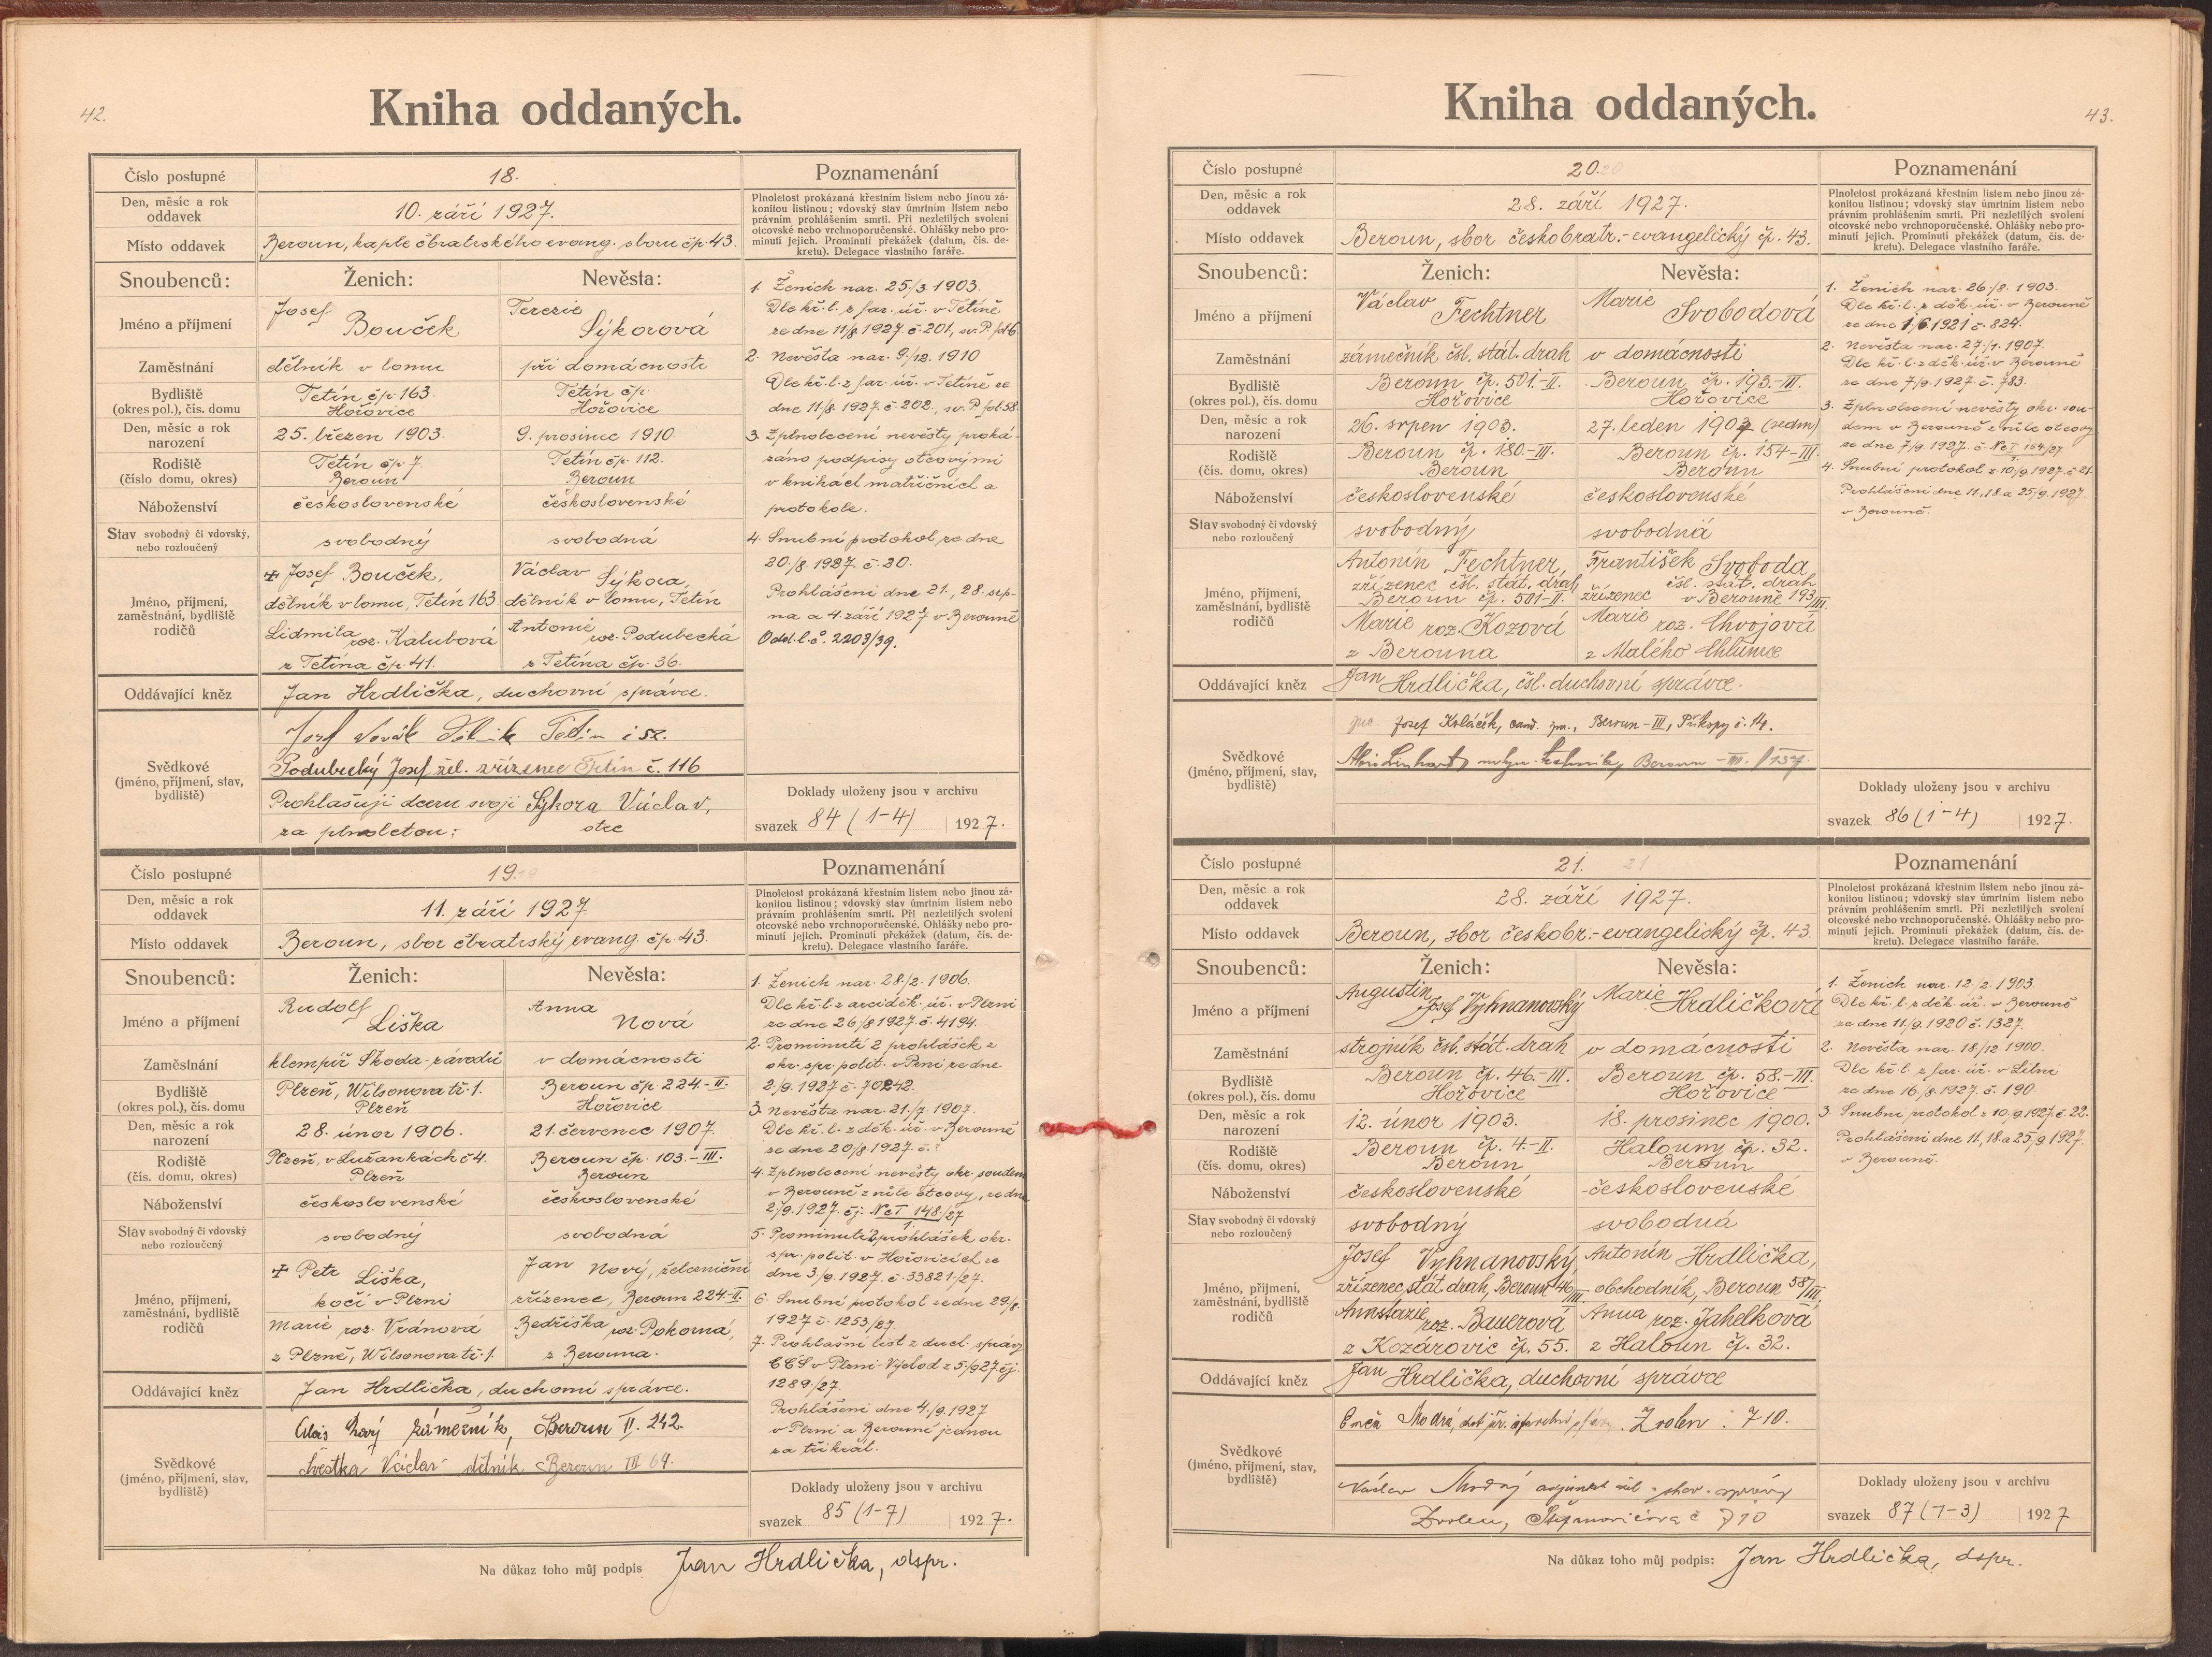 42.
Kniha oddaných.
Číslo postupné
18.
Poznamenání
Den, měsíc a rok
oddavek
10. září 1927.
Plnoletost prokázaná křestním listem nebo jinou zá-
konitou listinou; vdovský stav úmrtním listem nebo
právním prohlášením smrti. Při nezletilých svolení
otcovské nebo vrchnoporučenské. Ohlášky nebo pro-
minutí jejich. Prominutí překážek (datum, čís. de-
kretu). Delegace vlastního faráře.
Místo oddavek
Beroun, kaple čbratrského evang. sboru čp. 43.
Snoubenců:
Ženich:
Nevěsta:
Jméno a příjmení
Josef
Bouček
Terezie
Sýkorová
Zaměstnání
dělník v lomu
při domácnosti
Bydliště
(okres pol.), čís. domu
Tetín čp. 163
Hořovice
Tetín čp.
Hořovice
Den, měsíc a rok
narození
25. březen 1903.
9. prosinec 1910.
Rodiště
(číslo domu, okres)
Tetín čp. 7.
Beroun
Tetín čp. 112.
Beroun
Náboženství
československé
československé
Stav svobodný či vdovský,
nebo rozloučený
svobodný
svobodná
Jméno, příjmení,
zaměstnání, bydliště
rodičů
✠ Josef Bouček,
dělník v lomu, Tetín 163
Lidmila roz. Kalubová
z Tetína čp. 41.
Václav Sýkora,
dělník v lomu, Tetín
Antonie roz. Podubecká
z Tetína čp. 36.
Oddávající kněz
Jan Hrdlička, duchovní správce.
Svědkové
(jméno, příjmení, stav,
bydliště)
Josef Novák Dělník Tetín
Podubecký Josef žel. zřízenec Tetín č. 116
Prohlašuji dceru svoji Sýkora Václav,
za plnoletou: otec
1. Ženich nar. 25./3. 1903.
Dle kř. l. z far. úř. v Tetíně
ze dne 11/8 1927. č. 201, sv. P. fol 6.
2. Nevěsta nar. 9./12. 1910
Dle kř. l. z far. úř. v Tetíně ze
dne 11/8. 1927. č. 202., sv. P. fol. 58.
3. Zplnoletení nevěsty proká-
záno podpisy otcovými
v knihách matričních a
protokole.
4. Snubní protokol ze dne
20./8. 1927. č. 20.
Prohlášení dne 21., 28. srp-
na a 4. září 1927 v Berouně
Odd. l. č. 2203/39.
Doklady uloženy jsou v archivu
svazek 84 (1-4) 1927.
Číslo postupné
19.
Poznamenání
Den, měsíc a rok
oddavek
11. září 1927.
Plnoletost prokázaná křestním listem nebo jinou zá-
konitou listinou; vdovský stav úmrtním listem nebo
právním prohlášením smrti. Při nezletilých svolení
otcovské nebo vrchnoporučenské. Ohlášky nebo pro-
minutí jejich. Prominutí překážek (datum, čís. de-
kretu). Delegace vlastního faráře.
Místo oddavek
Beroun, sbor čbratrský evang. čp. 43.
Snoubenců:
Ženich:
Nevěsta:
Jméno a příjmení
Rudolf
Liška
Anna
Nová
Zaměstnání
klempíř Škoda-závodů
v domácnosti
Bydliště
(okres pol.), čís. domu
Plzeň, Wilsonova tř. 1.
Plzeň
Beroun čp. 224-II.
Hořovice
Den, měsíc a rok
narození
28. únor 1906.
21. červenec 1907.
Rodiště
(čís. domu, okres)
Plzeň, v Lužankách č 4.
Plzeň
Beroun čp. 103.-III.
Beroun
Náboženství
československé
československé
Stav svobodný či vdovský
nebo rozloučený
svobodný
svobodná
Jméno, příjmení,
zaměstnání, bydliště
rodičů
✠ Petr Liška,
kočí v Plzni
Marie roz. Vránová
z Plzně, Wilsonova tř. 1.
Jan Nový, železniční
zřízenec, Beroun 224.-II.
Bedřiška roz. Pokorná,
z Berouna.
Oddávající kněz
Jan Hrdlička, duchovní správce.
Svědkové
(jméno, příjmení, stav,
bydliště)
Alois Nový zámečník, Beroun II. 242.
Švestka Václav dělník Beroun III 69.
1. Ženich nar. 28./2. 1906.
Dle kř. l. z arciděk. úř. v Plzni
ze dne 26/8 1927. č. 4194.
2. Prominutí 2 prohlášek z
okr. spr. polit. v Plzni ze dne
2./9. 1927 č. 70242.
3. Nevěsta nar. 21./7. 1907.
Dle kř. l. z děk. úř. v Berouně
ze dne 20/8 1927. č. ?
4. Zplnoletení nevěsty okr. soudem
v Berouně z vůle otcovy, ze dne
2./9. 1927. čj. Nc I 148./27
1.
5. Prominutí 2 prohlášek okr.
spr. polit. v Hořovicích ze
dne 3./9. 1927. č. 33821/27.
6. Snubní protokol ze dne 29/8.
1927 č. 1253/27.
7. Prohlašní list z duch. správy
CČS v Plzni-Východ z 5/9 27 čj.
1289/27.
Prohlášeni dne 4./9. 1927
v Plzni a Berouně jednou
za třikrát.
Doklady uloženy jsou v archivu
svazek 85 (1-7) 1927.
Na důkaz toho můj podpis Jan Hrdlička, dspr.
43.
Kniha oddaných.
Číslo postupné
20. 20
Poznamenání
Den, měsíc a rok
oddavek
28. září 1927.
Plnoletost prokázaná křestním listem nebo jinou zá-
konitou listinou; vdovský stav úmrtním listem nebo
právním prohlášením smrti. Při nezletilých svolení
otcovské nebo vrchnoporučenské. Ohlášky nebo pro-
minutí jejich. Prominutí překážek (datum, čís. de-
kretu). Delegace vlastního faráře.
Místo oddavek
Beroun, sbor českobratr.-evangelický čp. 43.
Snoubenců:
Ženich:
Nevěsta:
Jméno a příjmení
Václav
Fechtner
Marie
Svobodová
Zaměstnání
zámečník čsl. stát. drah
v domácnosti
Bydliště
(okres pol.), čís. domu
Beroun čp. 501-II.
Hořovice
Beroun čp. 193.-III.
Hořovice
Den, měsíc a rok
narození
26. srpen 1903.
27. leden 1907 (sedm)
Rodiště
(čís. domu, okres)
Beroun čp. 180.-III.
Beroun
Beroun čp. 154-III.
Beroun
Náboženství
československé
československé
Stav svobodný či vdovský
nebo rozloučený
svobodný
svobodná
Jméno, příjmení,
zaměstnání, bydliště
rodičů
Antonín Fechtner,
zřízenec čsl. stát. drah,
Beroun čp. 501-II.
Marie roz. Kozová
z Berouna
František Svoboda,
zřízenec čsl. stát. drah
v Berouně 193/III.
Marie roz. Chvojová
z Malého Chlumce
Oddávající kněz
Jan Hrdlička, čsl. duchovní správce.
Svědkové
(jméno, příjmení, stav,
bydliště)
Josef Koláček, cand. Beroun-III, Příkopy č. 14.
Linhart, Beroun-III. 137.
1. Ženich nar. 26./8. 1903.
Dle kř. l. z děk. úř. v Berouně
ze dne 1/6 1921 č. 824.
2. Nevěsta nar. 27./1. 1907.
Dle kř. l. z děk. úř. v Berouně
ze dne 7/9. 1927. č. 783.
3. Zplnoletení nevěsty okr. sou-
dem v Berouně z vůle otcovy
ze dne 7/9. 1927. č. Nc I 154/27
1.
4. Snubní protokol z 10/9. 1927. č. 21.
Prohlášeni dne 11., 18. a 25/9. 1927.
v Berouně.
Doklady uloženy jsou v archivu
svazek 86 (1-4) 1927.
Číslo postupné
21. 21
Poznamenání
Den, měsíc a rok
oddavek
28. září 1927.
Plnoletost prokázaná křestním listem nebo jinou zá-
konitou listinou; vdovský stav úmrtním listem nebo
právním prohlášením smrti. Při nezletilých svolení
otcovské nebo vrchnoporučenské. Ohlášky nebo pro-
minutí jejich. Prominutí překážek (datum, čís. de-
kretu). Delegace vlastního faráře.
Místo oddavek
Beroun, sbor českobr.-evangelický čp. 43.
Snoubenců:
Ženich:
Nevěsta:
Jméno a příjmení
Augustin
Josef Vyhnanovský
Marie Hrdličková
Zaměstnání
strojník čsl. stát. drah
v domácnosti
Bydliště
(okres pol.), čís. domu
Beroun čp. 46.-III.
Hořovice
Beroun čp. 58.-III.
Hořovice
Den, měsíc a rok
narození
12. únor 1903.
18. prosinec 1900.
Rodiště
(čís. domu, okres)
Beroun čp. 4-II.
Beroun
Halouny čp. 32.
Beroun
Náboženství
československé
československé
Stav svobodný či vdovský
nebo rozloučený
svobodný
svobodná
Jméno, příjmení,
zaměstnání, bydliště
rodičů
Josef Vyhnanovský,
zřízenec stát. drah, Beroun 46/III.
Anastazie roz. Bauerová
z Kozárovic čp. 55.
Antonín Hrdlička,
obchodník, Beroun 58/III
Anna roz. Jahelková
z Haloun čp. 32.
Oddávající kněz
Jan Hrdlička, duchovní správce
Svědkové
(jméno, příjmení, stav,
bydliště)
Modrá, Zvolen 710.
Václav Modrý adjunkt žel. stav. správy
Zvolen, č 710
1. Ženich nar. 12./2. 1903
Dle kř. l. z děk. úř. v Berouně
ze dne 11./9. 1920 č. 1327.
2. Nevěsta nar. 18/12 1900.
Dle kř. l. z far. úř. v Litni
ze dne 16./8. 1927. č. 190.
3. Snubní protokol z 10./9. 1927 č. 22.
Prohlášeni dne 11., 18. a 25/9 1927.
v Berouně.
Doklady uloženy jsou v archivu
svazek 87 (1-3) 1927
Na důkaz toho můj podpis: Jan Hrdlička, dspr.